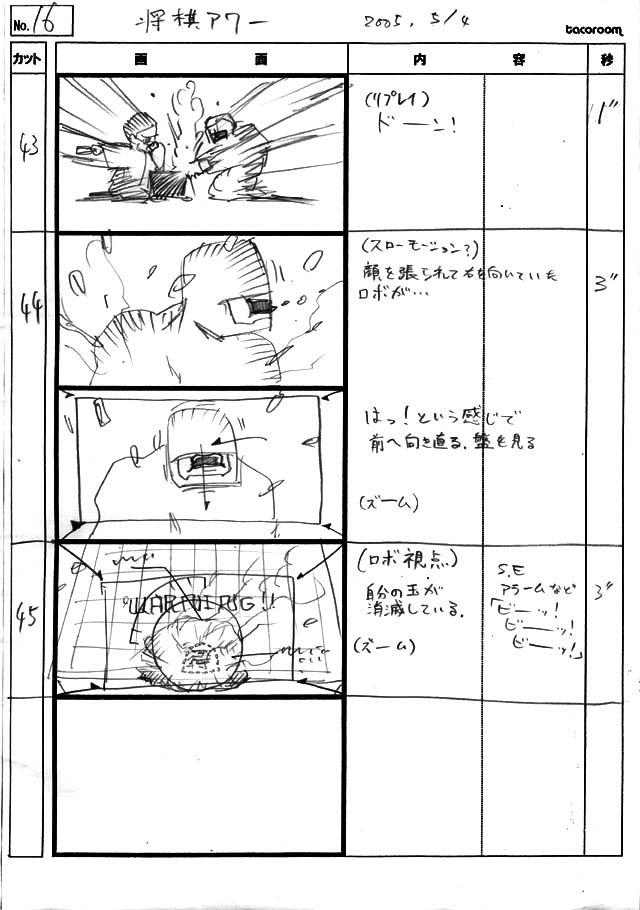 No. 16
将棋アワー
2005. 5/4
tacoroom
カット
画面
内容
秒
43
(リプレイ)
ドーン!
1"
44
(スローモーション?)
顔を張られて右を向いていた
ロボが…
3"
はっ!という感じで
前へ向き直る.盤を見る
(ズーム)
45
WARNING!!
(ロボ視点)
自分の玉が
消滅している.
(ズーム)
S.E
アラームなど
「ビーッ!
ビーッ!
ビーッ!」
3"